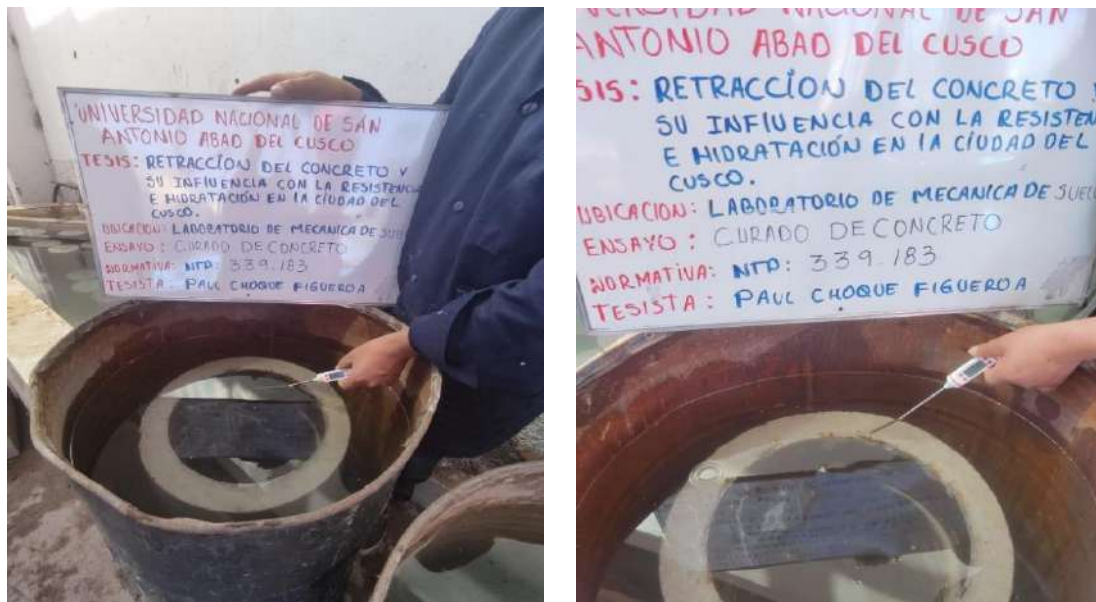 UNIVERSIDAD NACIONAL DE SAN
ANTONIO ABAD DEL CUSCO
TESIS: RETRACCÍON DEL CONCRETO Y
SU INFLUENCIA CON LA RESISTENCIA
E HIDRATACIÓN EN LA CIUDAD DEL
CUSCO.
UBICACION: LABORATORIO DE MECANICA DE
ENSAYO: CURADO DE CONCRETO
NORMATIVA: NTP: 339.183
TESISTA: PAUL CHOQUE FIGUEROA
UNIVERSIDAD NACIONAL DE SAN
ANTONIO ABAD DEL CUSCO
SIS: RETRACCÍON DEL CONCRETO
SU INFLUENCIA CON LA RESISTEN
E HIDRATACIÓN EN LA CÍUDAD DEL
CUSCO.
UBICACION: LABORATORIO DE MECANICA DE SUEL
ENSAYO: CURADO DE CONCRETO
NORMATIVA: NTP: 339.183
TESISTA: PAUL CHOQUE FIGUEROA